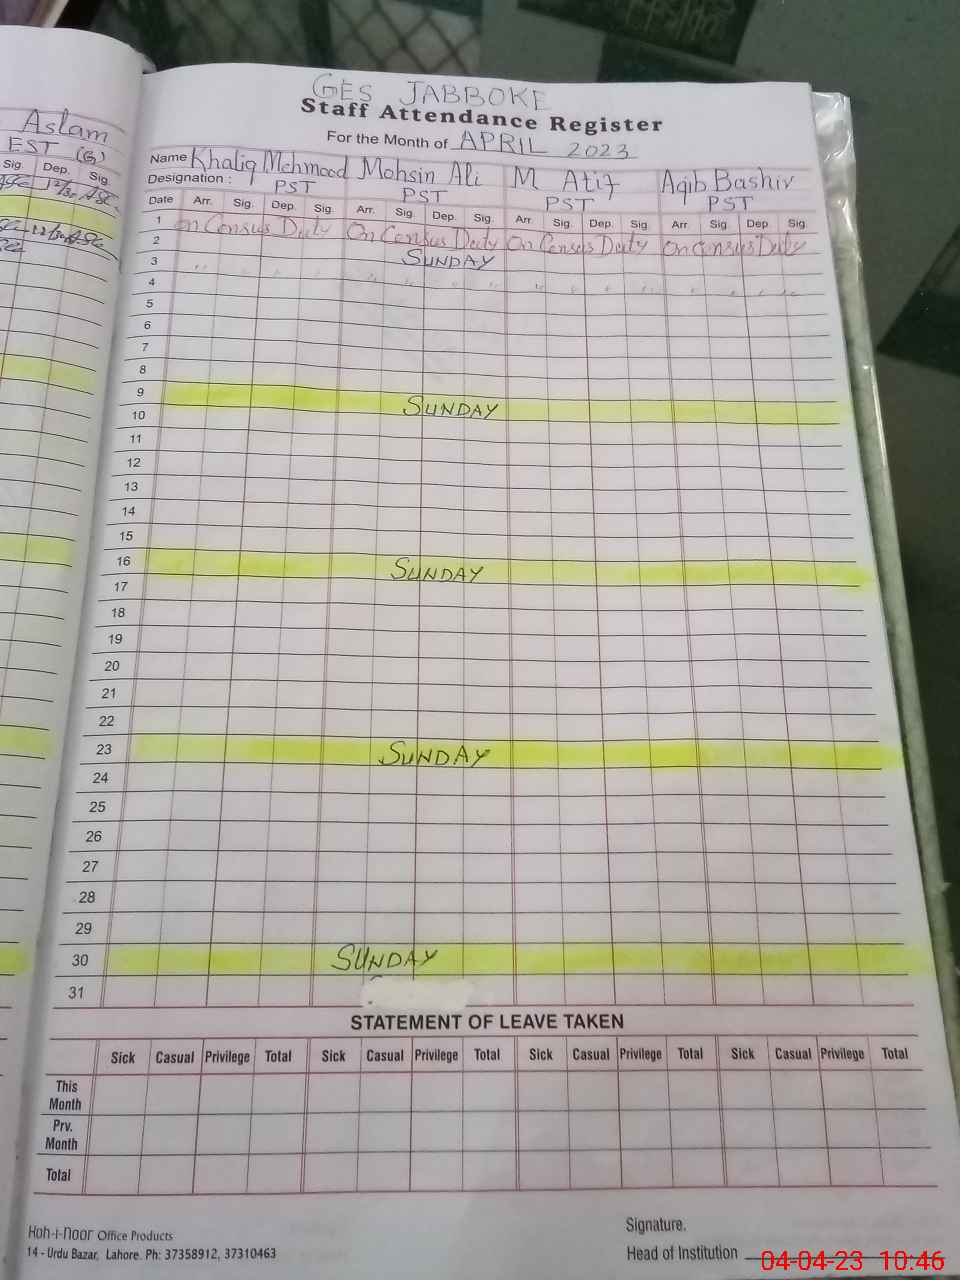 Aslam
EST (G)
Sig. Dep. Sig.
12/30
12/30
GES JABBOKE
Staff Attendance Register
For the Month of APRIL 2023
Name Khaliq Mehmood Mohsin Ali M Atif Aqib Bashir
Designation : PST PST PST PST
Date Arr. Sig. Dep. Sig. Arr. Sig. Dep. Sig. Arr. Sig. Dep. Sig. Arr. Sig. Dep. Sig.
1 on Census Duty On Census Duty On Census Duty On Census Duty
2 SUNDAY
3 " " " " " " " " " " " " " " " "
4
5
6
7
8
9 SUNDAY
10
11
12
13
14
15
16 SUNDAY
17
18
19
20
21
22
23 SUNDAY
24
25
26
27
28
29
30 SUNDAY
31
STATEMENT OF LEAVE TAKEN
Sick Casual Privilege Total Sick Casual Privilege Total Sick Casual Privilege Total Sick Casual Privilege Total
This
Month
Prv.
Month
Total
Koh-i-Noor Office Products
14 - Urdu Bazar, Lahore. Ph: 37358912, 37310463
Signature.
Head of Institution
04-04-23 10:46